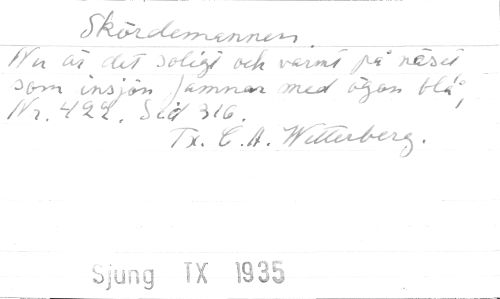 Skördemannen.
Nu är det soligt och varmt på näset
som insjön famnar med ögon blå,
Nr. 422. Sid 316.
Tx. C. A. Wetterberg.
Sjung TX 1935